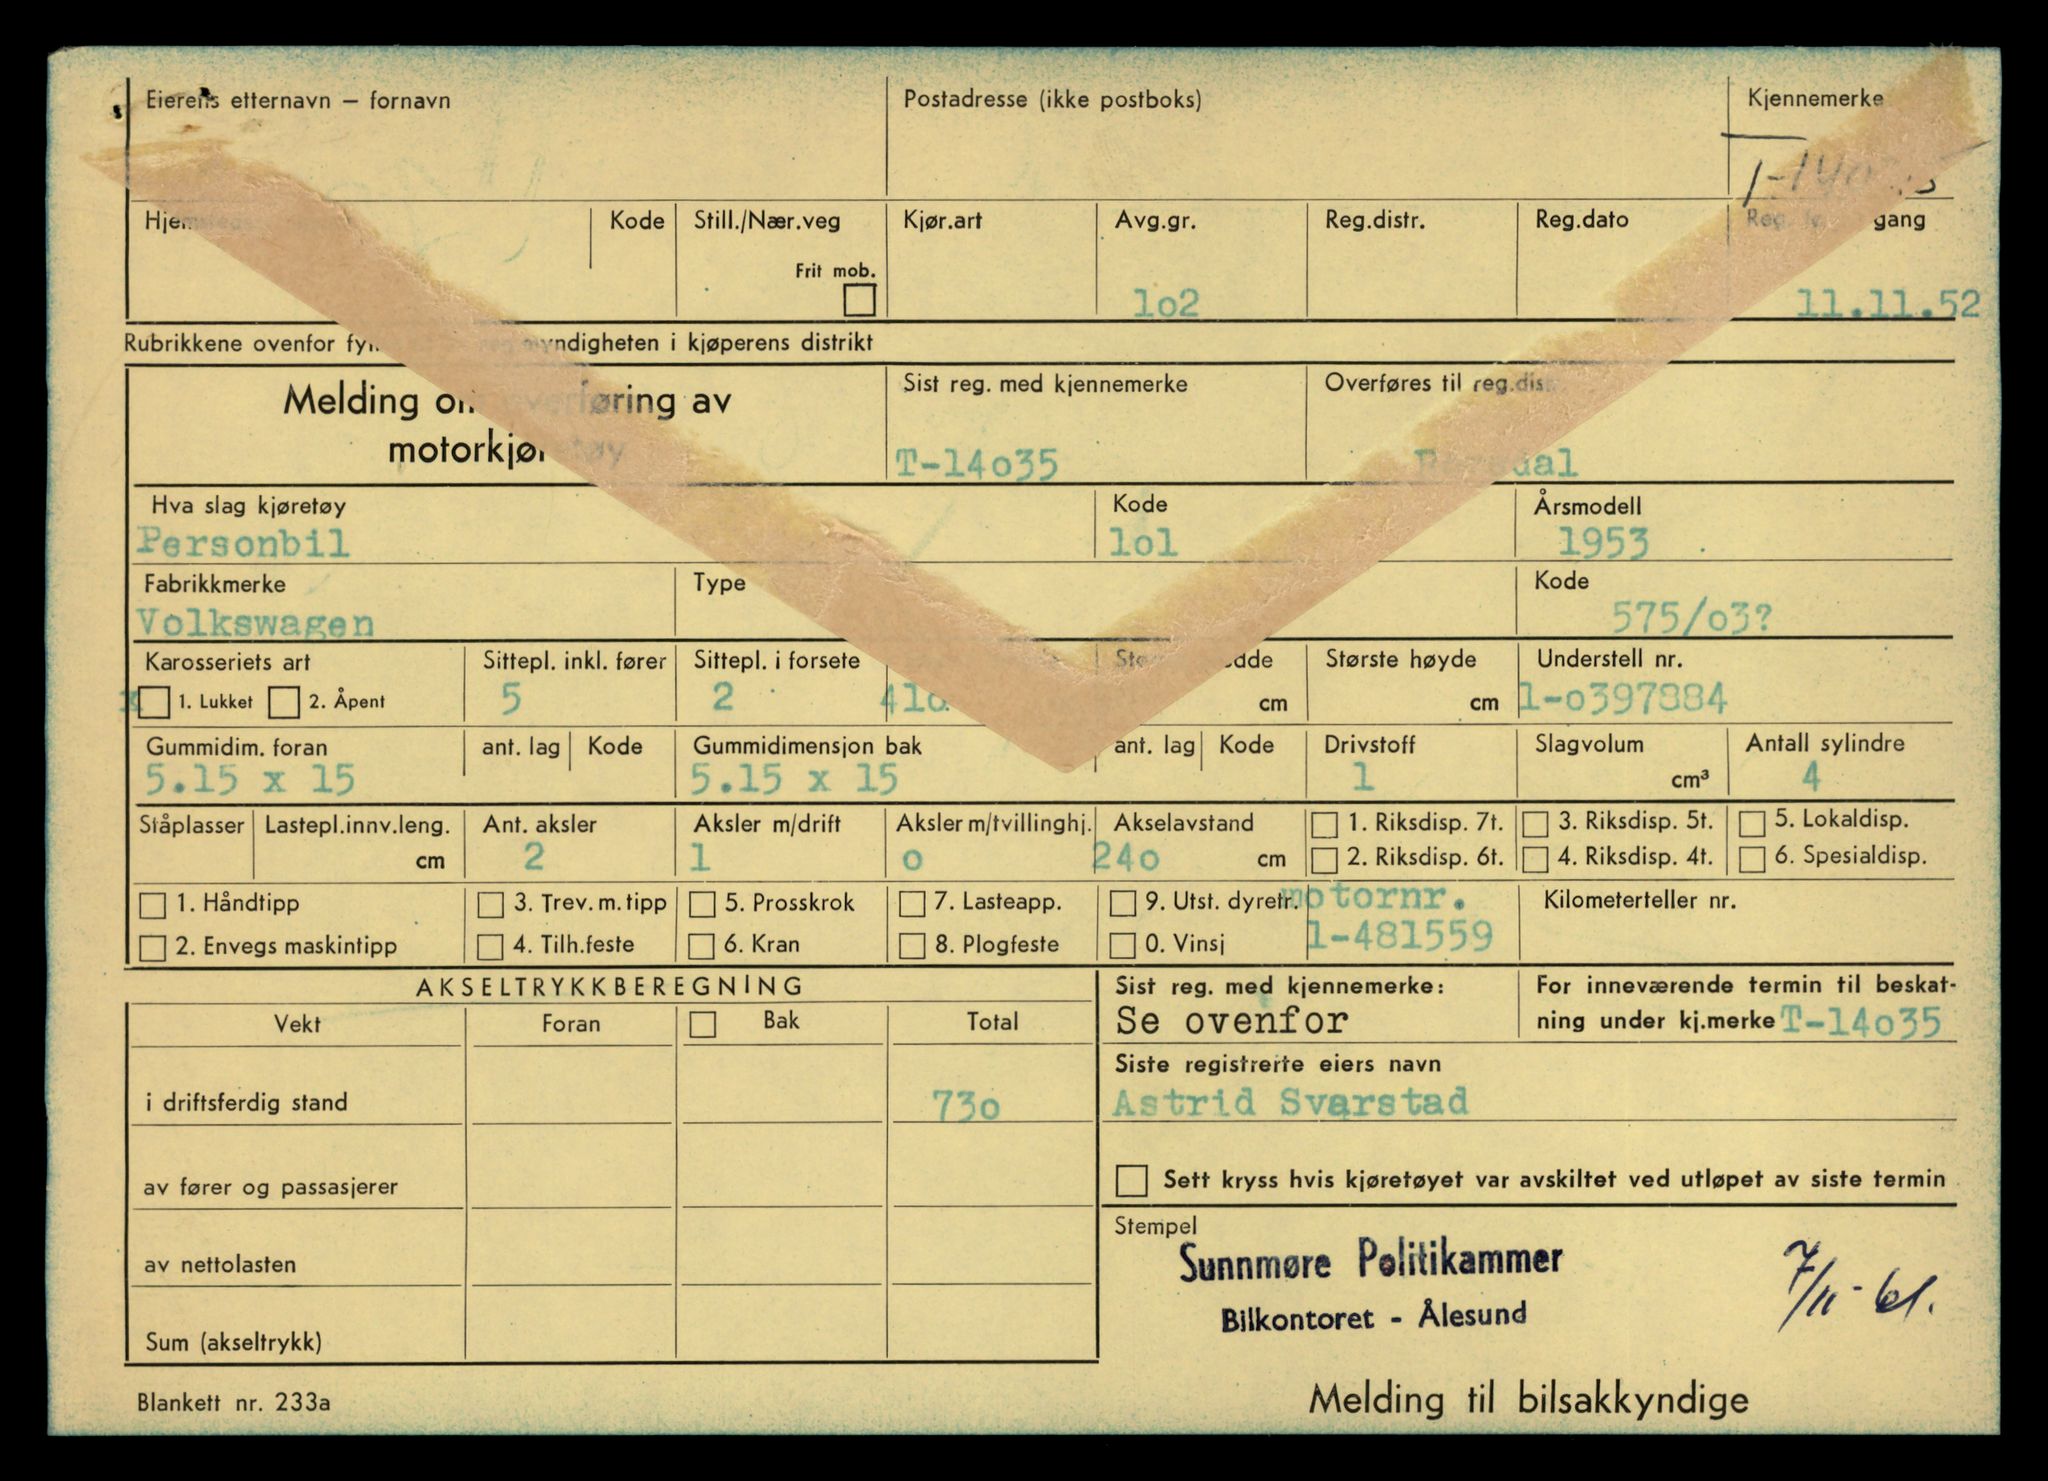 Eierens etternavn – fornavn Postadresse (ikke postboks) Kjennemerke
T-14035
Kode Still./Nær.veg Kjør.art Avg.gr. Reg.distr. Reg.dato Reg. gang
Frit mob.
1o2 11.11.52
Rubrikkene ovenfor myndigheten i kjøperens distrikt
Melding om overføring av
motorkjøretøy
Sist reg. med kjennemerke Overføres til reg.dis
T-14o35
Hva slag kjøretøy Kode Årsmodell
Personbil 1o1 1953
Fabrikkmerke Type Kode
Volkswagen 575/o3?
Karosseriets art Sittepl. inkl. fører Sittepl. i forsete Største høyde Understell nr.
x 1. Lukket 2. Åpent 5 2 41o cm cm 1-o397884
Gummidim. foran ant. lag Kode Gummidimensjon bak ant. lag Kode Drivstoff Slagvolum Antall sylindre
5.15 x 15 5.15 x 15 1 cm³ 4
Ståplasser Lastepl.innv.leng. Ant. aksler Aksler m/drift Aksler m/tvillinghj. Akselavstand 1. Riksdisp. 7t. 3. Riksdisp. 5t. 5. Lokaldisp.
cm 2 1 o 24o cm 2. Riksdisp. 6t. 4. Riksdisp. 4t. 6. Spesialdisp.
1. Håndtipp 3. Trev. m. tipp 5. Prosskrok 7. Lasteapp. 9. Utst. dyretr. motornr. Kilometerteller nr.
2. Envegs maskintipp 4. Tilh.feste 6. Kran 8. Plogfeste 0. Vinsj 1-481559
AKSELTRYKKBEREGNING
Vekt Foran Bak Total
i driftsferdig stand 73o
av fører og passasjerer
av nettolasten
Sum (akseltrykk)
Sist reg. med kjennemerke: For inneværende termin til beskat-
Se ovenfor ning under kj.merke T-14o35
Siste registrerte eiers navn
Astrid Svarstad
Sett kryss hvis kjøretøyet var avskiltet ved utløpet av siste termin
Stempel
Sunnmøre Politikammer
Bilkontoret - Ålesund
7/11-61.
Blankett nr. 233a Melding til bilsakkyndige